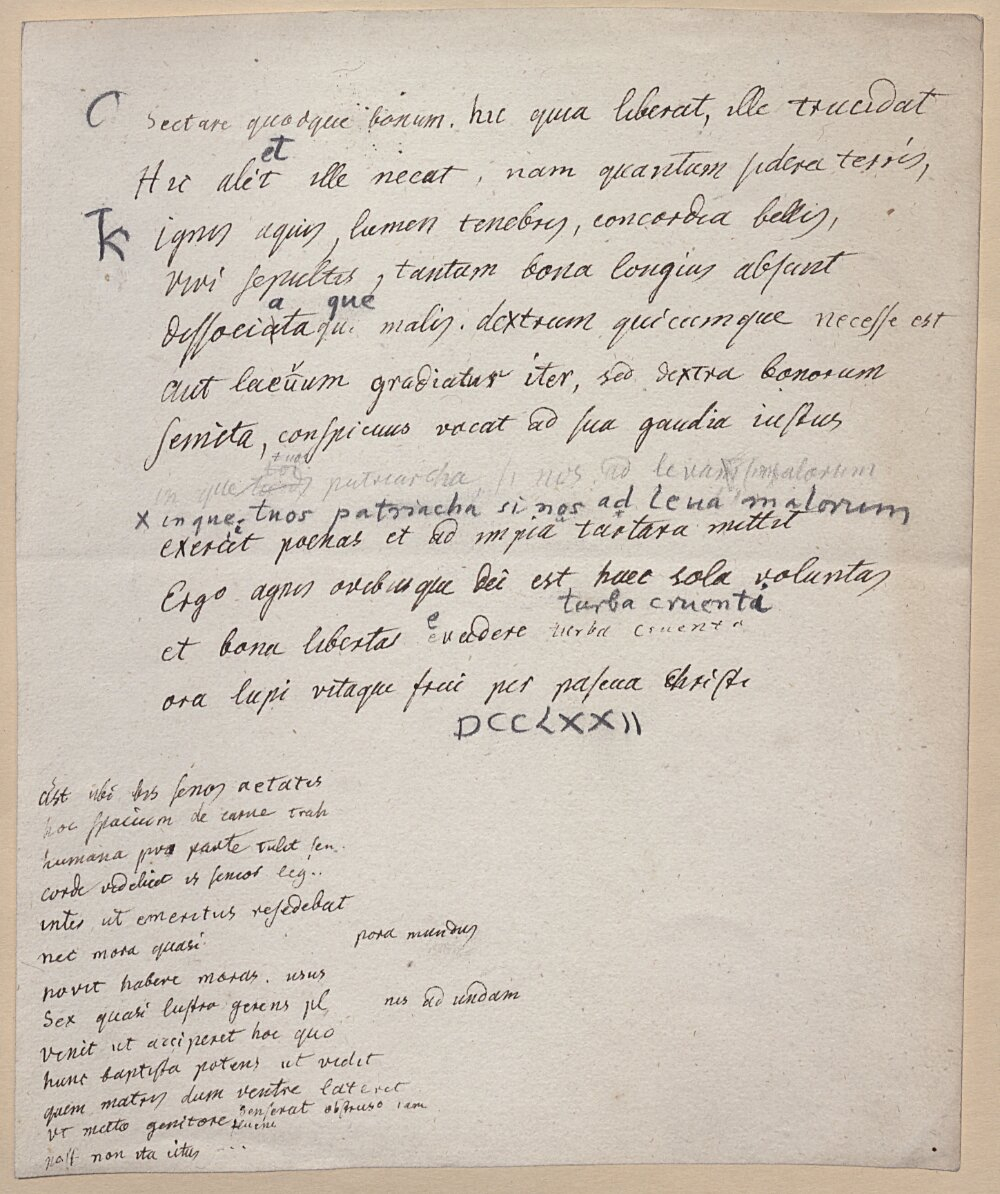 C Sectare quodque bonum. hic quia liberat, ille trucidat
et
Hic alit ille necat, nam quantum sidera terris,
K ignis aquis, lumen tenebris, concordia bellis,
vivi sepultis, tantum bona longius absunt
a que
dissociataque malis. dextrum quicumque necesse est
aut laevum gradiatur iter, sed dextra bonorum
semita, conspicuus vocat ad sua gaudia iustus
tuos
in que patriarcha, si nos ad leva malorum
X inque tuos patriacha si nos ad leva malorum
exercet poenas et ad impia tartara mittit
Ergo agnis ovibusque dei est haec sola voluntas
turba cruenta
e
et bona libertas evadere turba cruenta
ora lupi vitaque frui per pascua christi
DCCLXXII
ast ubi bis senos aetatis
hoc spacium de carne trah
humana pro parte tulit sen..
corde videlicet is senior leg..
inter ut emeritus residebat
nec mora quasi pora mundus
novit habere moras. usus
Sex quasi lustra gerens pl nis ad undam
venit ut acciperet hoc quo
hunc baptista potens ut vidit
quem matris dum ventre lateret
ut misso genitore senserat obstruso iam
non ita citus ...